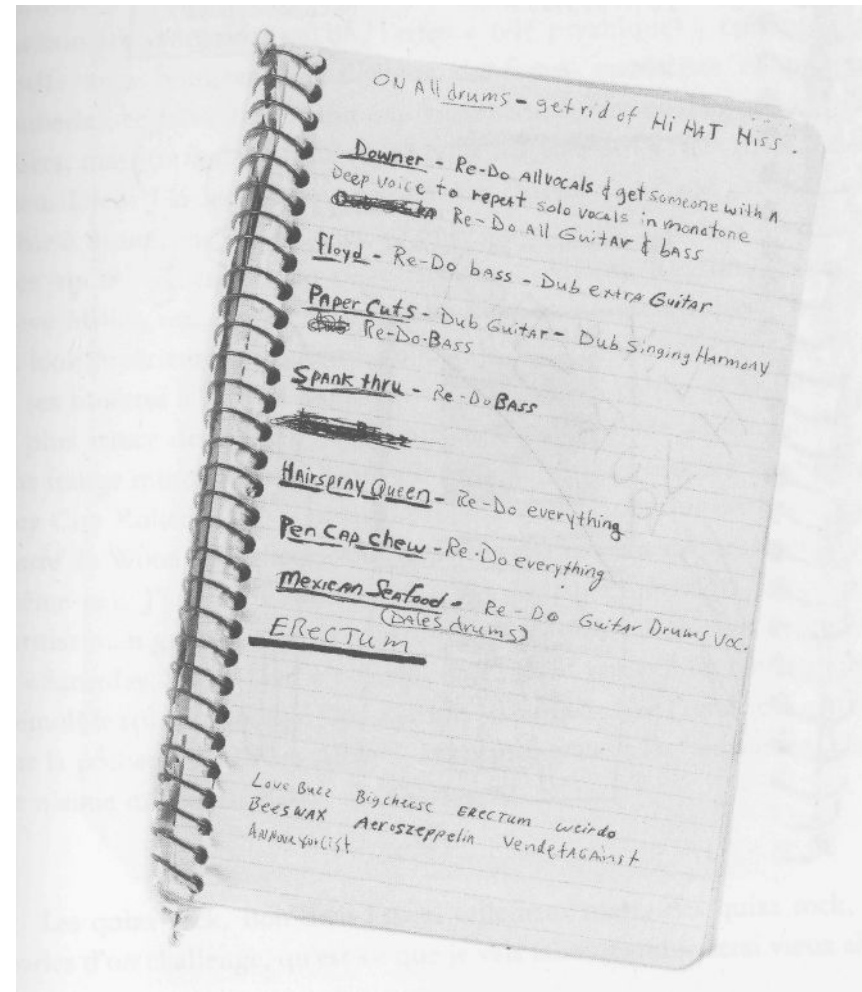 ON All drums - get rid of Hi HAT Hiss.
Downer - Re-Do All vocals & get someone with A
Deep voice to repeat solo vocals in monotone
Re-Do All Guitar & bass
floyd - Re-Do bass - Dub extra Guitar
Paper Cuts - Dub Guitar - Dub Singing Harmony
Re-Do-BASS
Spank thru - Re-Do BASS
HAirspray Queen - Re-Do everything
Pen CAp chew - Re-Do everything
Mexican Seafood - Re-Do Guitar Drums voc.
(DAles drums)
ERecTum
Love Buzz Big cheese ERECTum weirdo
BeesWAX Aeroszeppelin VendetAGAinst